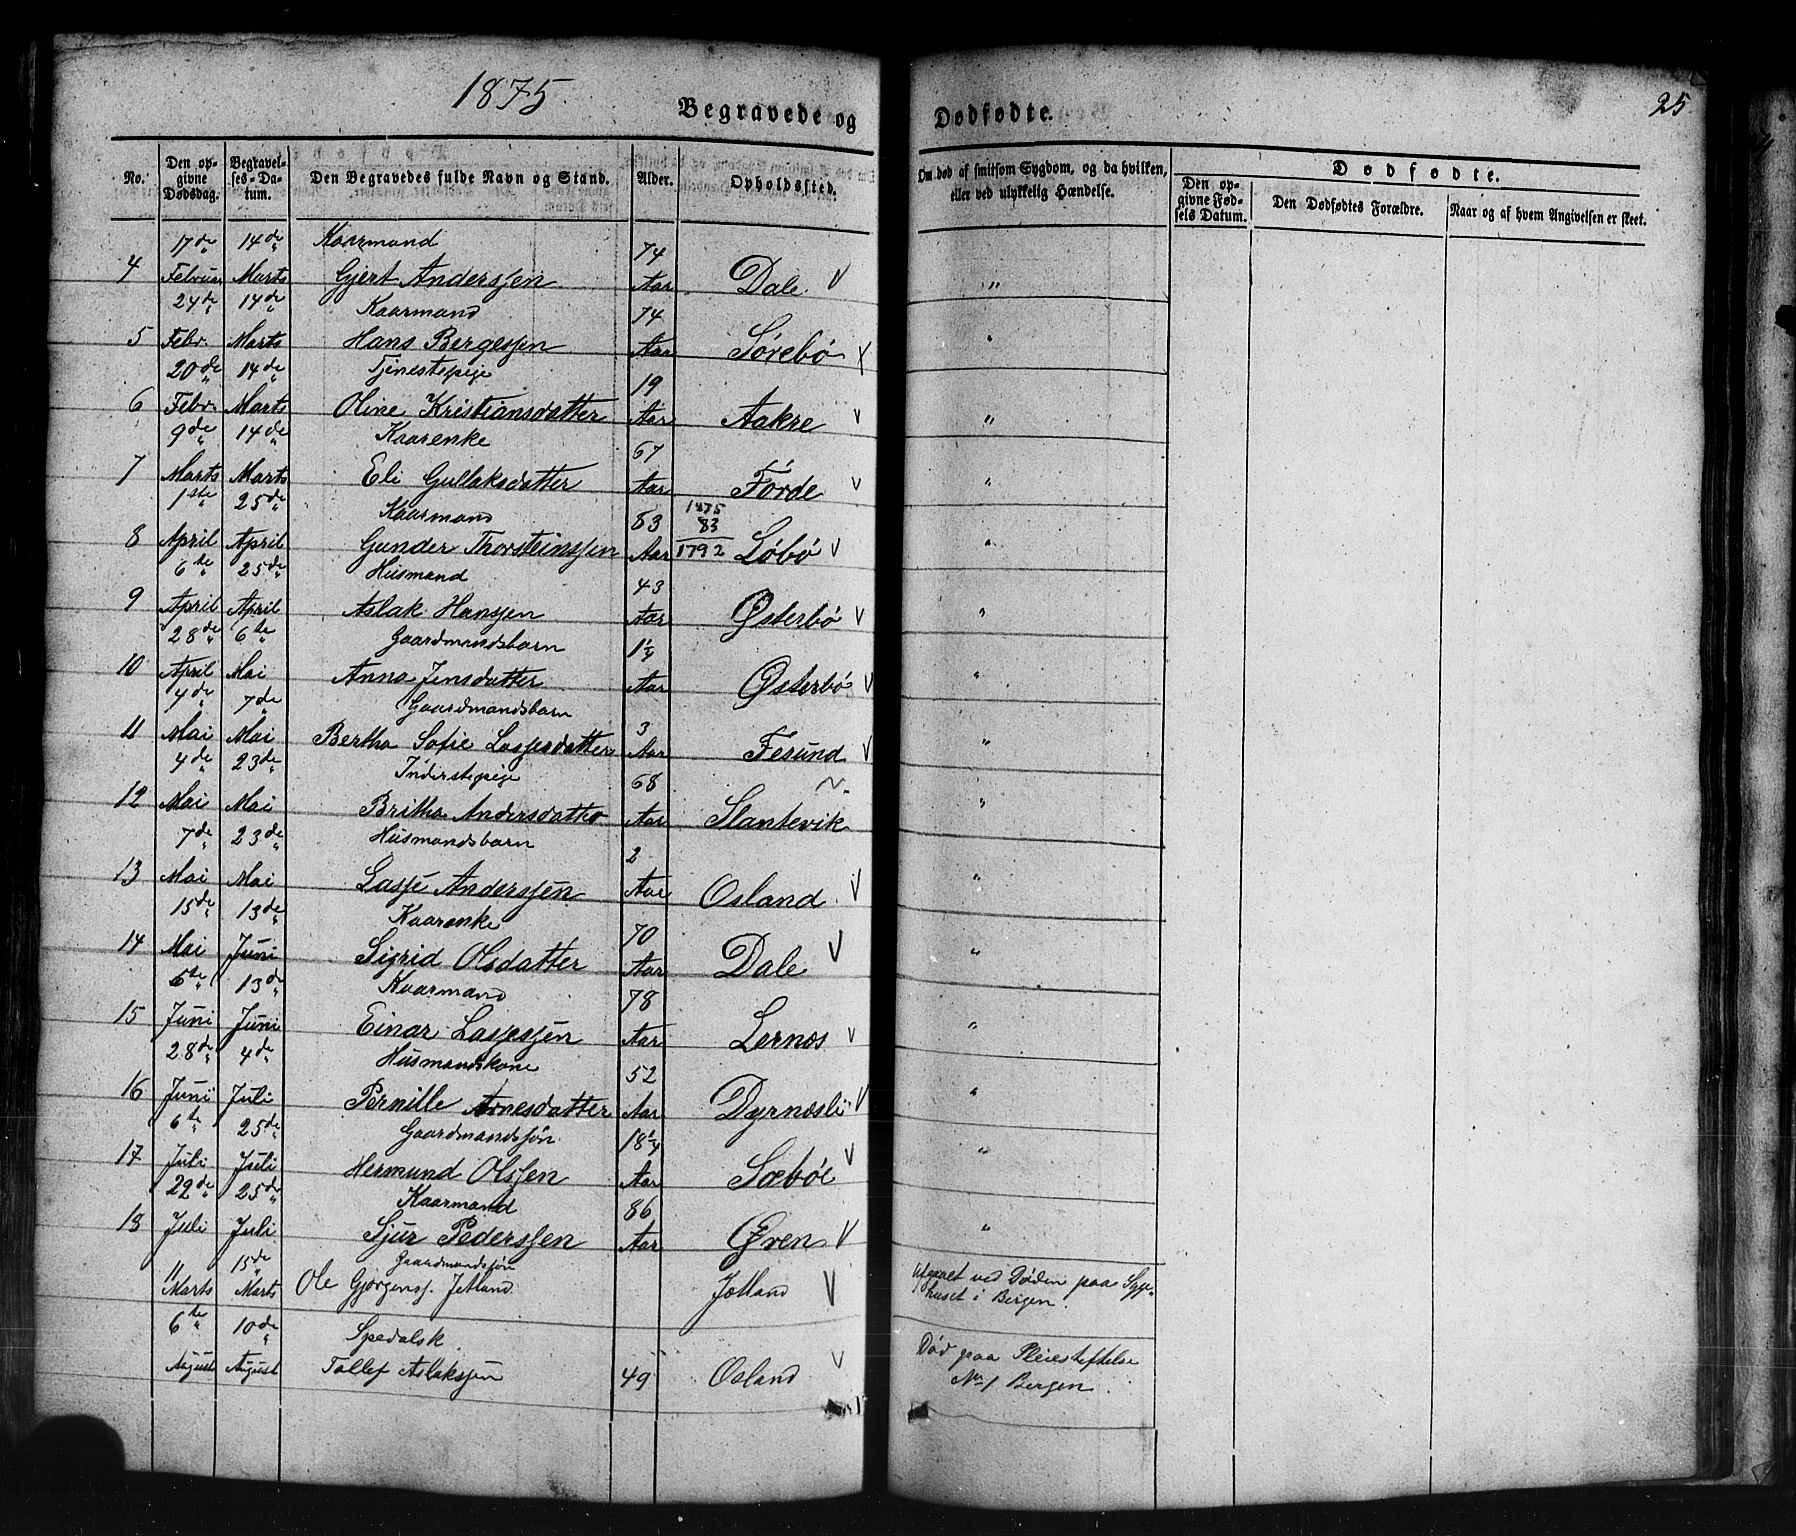 1875.
Begravede og Dødfødte.
25
No.
Den opgivne Dødsdag.
Begravelses-Datum.
Den Begravedes fulde Navn og Stand.
Alder.
Opholdssted.
Om død af smitsom Sygdom, og da hvilken, eller ved ulykkelig Hændelse.
Dødfødte.
Den opgivne Fødsels Datum.
Den Dødfødtes Forældre.
Naar og af hvem Angivelsen er skeet.
17de 14de Kaarmand 74
4 Februar Marts Gjert Anderssen Aar Dale V "
24de 14de Kaarmand 74
5 Febr. Marts Hans Bergessen Aar Sørebø X "
20de 14de Tjenestepige 19
6 Febr. Marts Oline Kristiansdatter Aar Aakre V "
9de 14de Kaarenke 67
7 Marts Marts Eli Gullaksdatter Aar Førde V "
1ste 25de Kaarmand 83 1875 83
8 April April Gunder Thorsteinssen Aar 1792 Løbø V "
6te 25de Husmand 43
9 April April Aslak Hanssen Aar Østerbø V "
28de 6te Gaardmandsbarn 1 1/4
10 April Mai Anna Jensdatter Aar Østerbø V "
4de 7de Gaardmandsbarn 3
11 Mai Mai Bertha Sofie Lassesdatter Aar Fesund V "
4de 23de Inderstepige 68
12 Mai Mai Britha Andersdatter Aar Slantevik "
7de 23de Husmandsbarn 2
13 Mai Mai Lasse Anderssen Aar Osland V "
15de 13de Kaarenke 70
14 Mai Juni Sigrid Olsdatter Aar Dale V "
6te 13de Kaarmand 78
15 Juni Juni Einar Lassessen Aar Lernæs V "
28de 4de Husmandskone 52
16 Juni Juli Pernille Arnesdatter Aar Dyrnæsli V "
6te 25de Gaardmandssøn 18 1/4
17 Juli Juli Hermund Olssen Aar Sæbøe V "
22de 25de Kaarmand 86
18 Juli Juli Sjur Pederssen Aar Øren V "
11 15de Gaardmandssøn
Marts Marts Ole Gjørgenss. Jetland Jætland V Afgaaet ved Døden paa Sygehuset i Bergen.
6te 10de Spedalsk
August August Tollef Aslakssen 49 Osland V Død paa Pleiestiftelse No 1 Bergen.